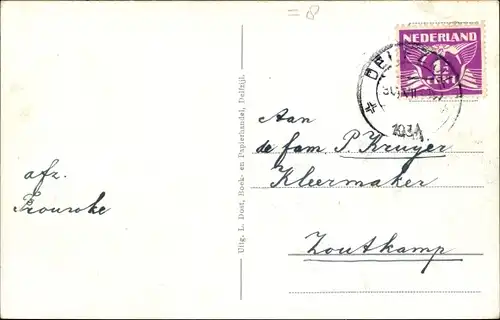 = 8
NEDERLAND
DEL
1934
Aan
de fam. P. Kruyer
Kleermaker
Zoutkamp
afz.
Uitg. L. Dost, Boek- en Papierhandel, Delfzijl.